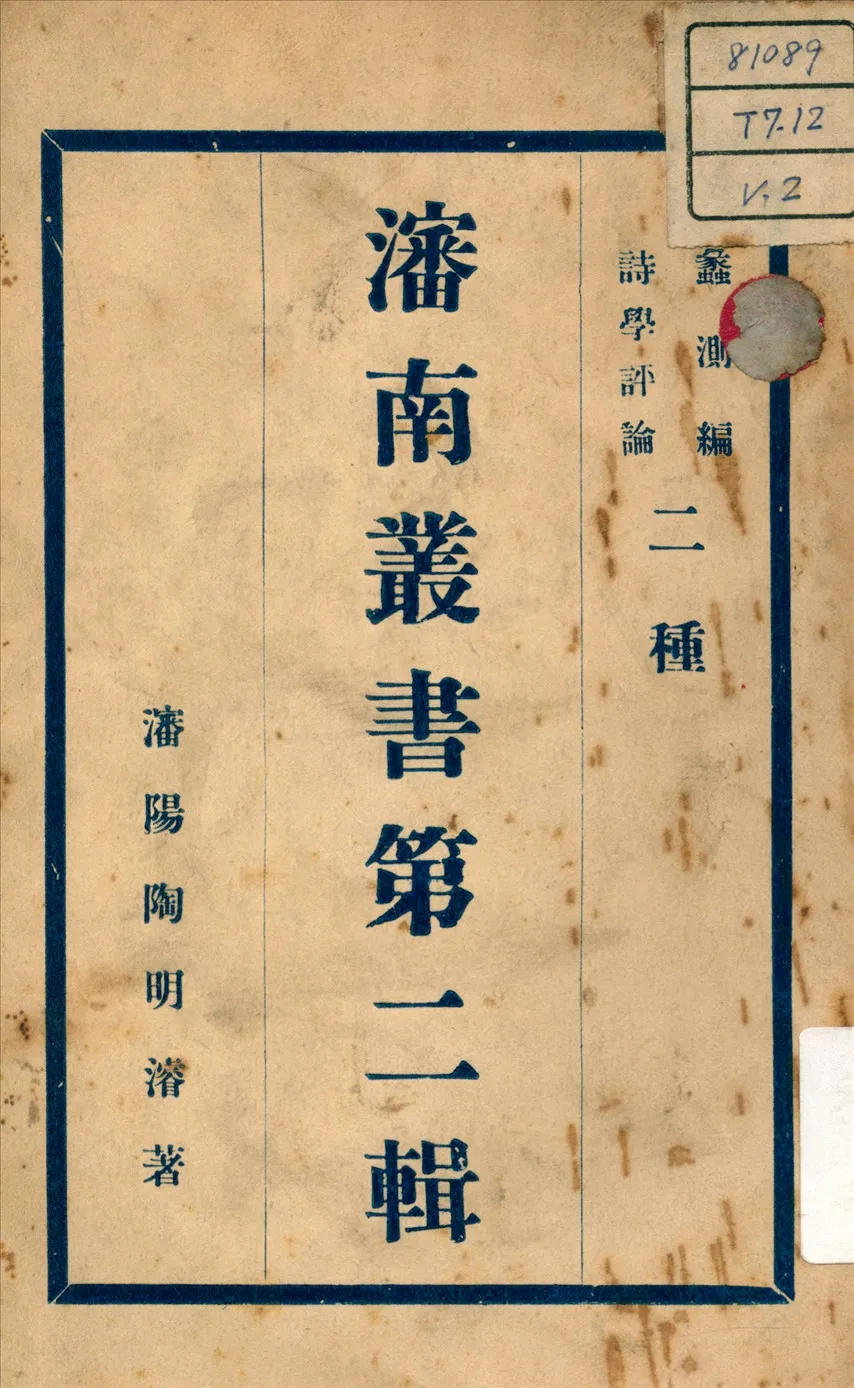 81089
T7.12
V.2
蠡測編
詩學評論
二種
瀋南叢書第二輯
瀋陽陶明濬著